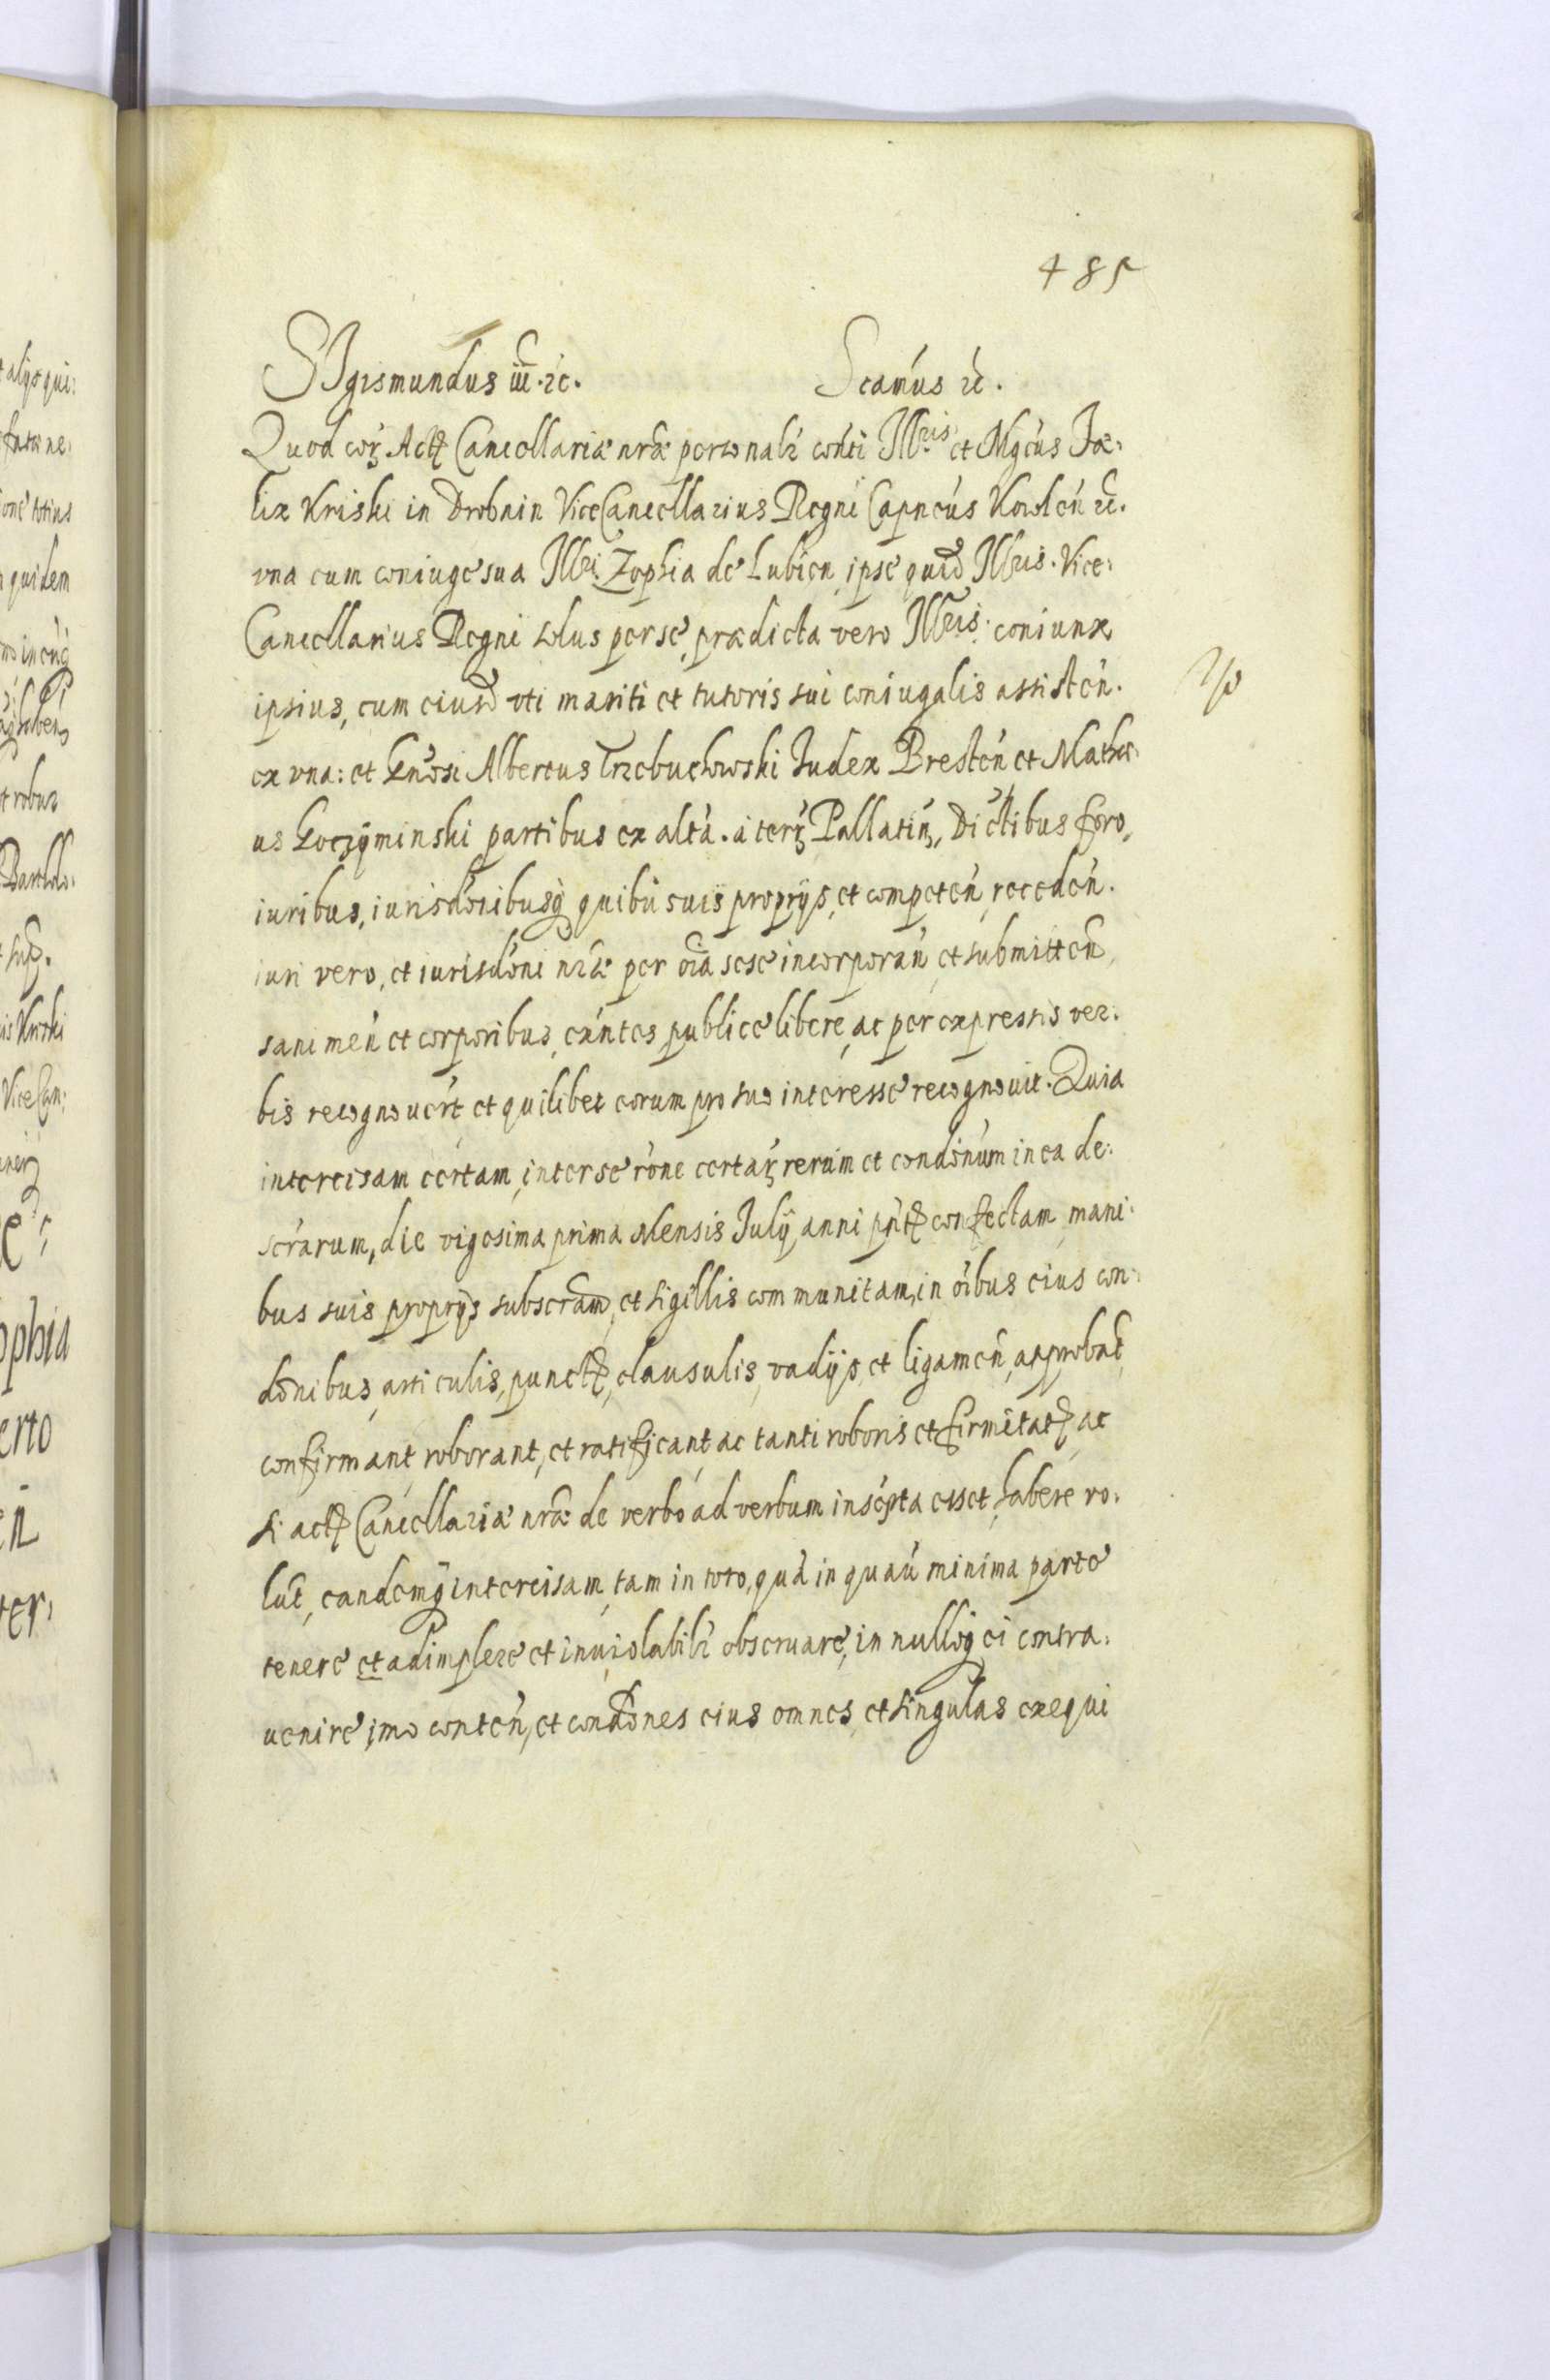 485
Sigismundus iii. etc. Scamus etc.
Quod cor. Actis Cancellariæ nræ personalr conti Illris et Mgcus Fæ:
lix Kriski in Drobnin ViceCancellarius Regni Capneus Kowlen etc.
vna cum coniuge sua Illri. Zophia de Lubien, ipse quid Illris. Vice:
Cancellarius Regni solus per se, prædicta vero Illris. coniunx
ipsius, cum eiusd vti mariti et tutoris sui coniugalis assisten.
ex vna: et Gnosi Albertus Trzebuchowski Iudex Bresten et Mathæ:
us Goczÿminski partibus ex alta. a terr Pallatin, Districtibus foro,
iuribus, iurisdonibusq quibu suis proprÿs, et competen, receden.
iuri vero, et iurisdoni nræ per oia sese incorporan, et submitten,
sani men et corporibus, exntes, publice libere, ac per expressis ver:
bis recognouert et quilibet eorum pro suo interesse recognouit. Quia
intercisam certam, inter se rone certar rerum et condonum in ea de:
scrarum, die vigesima prima Mensis Julÿ, anni pntis confectam, mani:
bus suis proprÿs subscram, et sigillis communitam, in oibus eius con:
donibus, articulis, punctis, clausulis, vadÿs, et ligamen, approbat,
confirmant roborant, et ratificant, ac tanti roboris et firmitatis, ac
si actis Cancellariæ nræ de verbo ad verbum inscpta esset, habere vo:
lut, eandemq intercisam, tam in toto, qua in quau minima parte
tenere et adimplere et inuiolabilr obseruare, in nulloq ei contra:
uenire, imo conten, et condones eius omnes, et singulas exequi